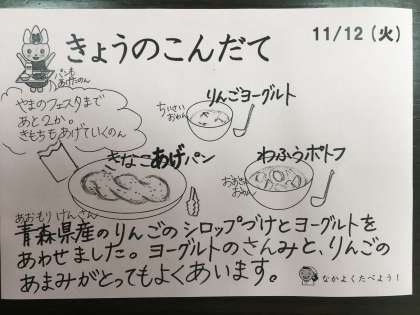 きょうのこんだて
11/12(火)
パンも
あげたのん
やまのフェスタまで
あと2か。
きもちもあげていくのん
りんごヨーグルト
ちいさい
おわん
きなこあげパン
わふうポトフ
おおきい
おわん
あおもりけんさん
青森県産のりんごのシロップづけとヨーグルトを
あわせました。ヨーグルトのさんみと、りんごの
あまみがとってもよくあいます。
なかよくたべよう!